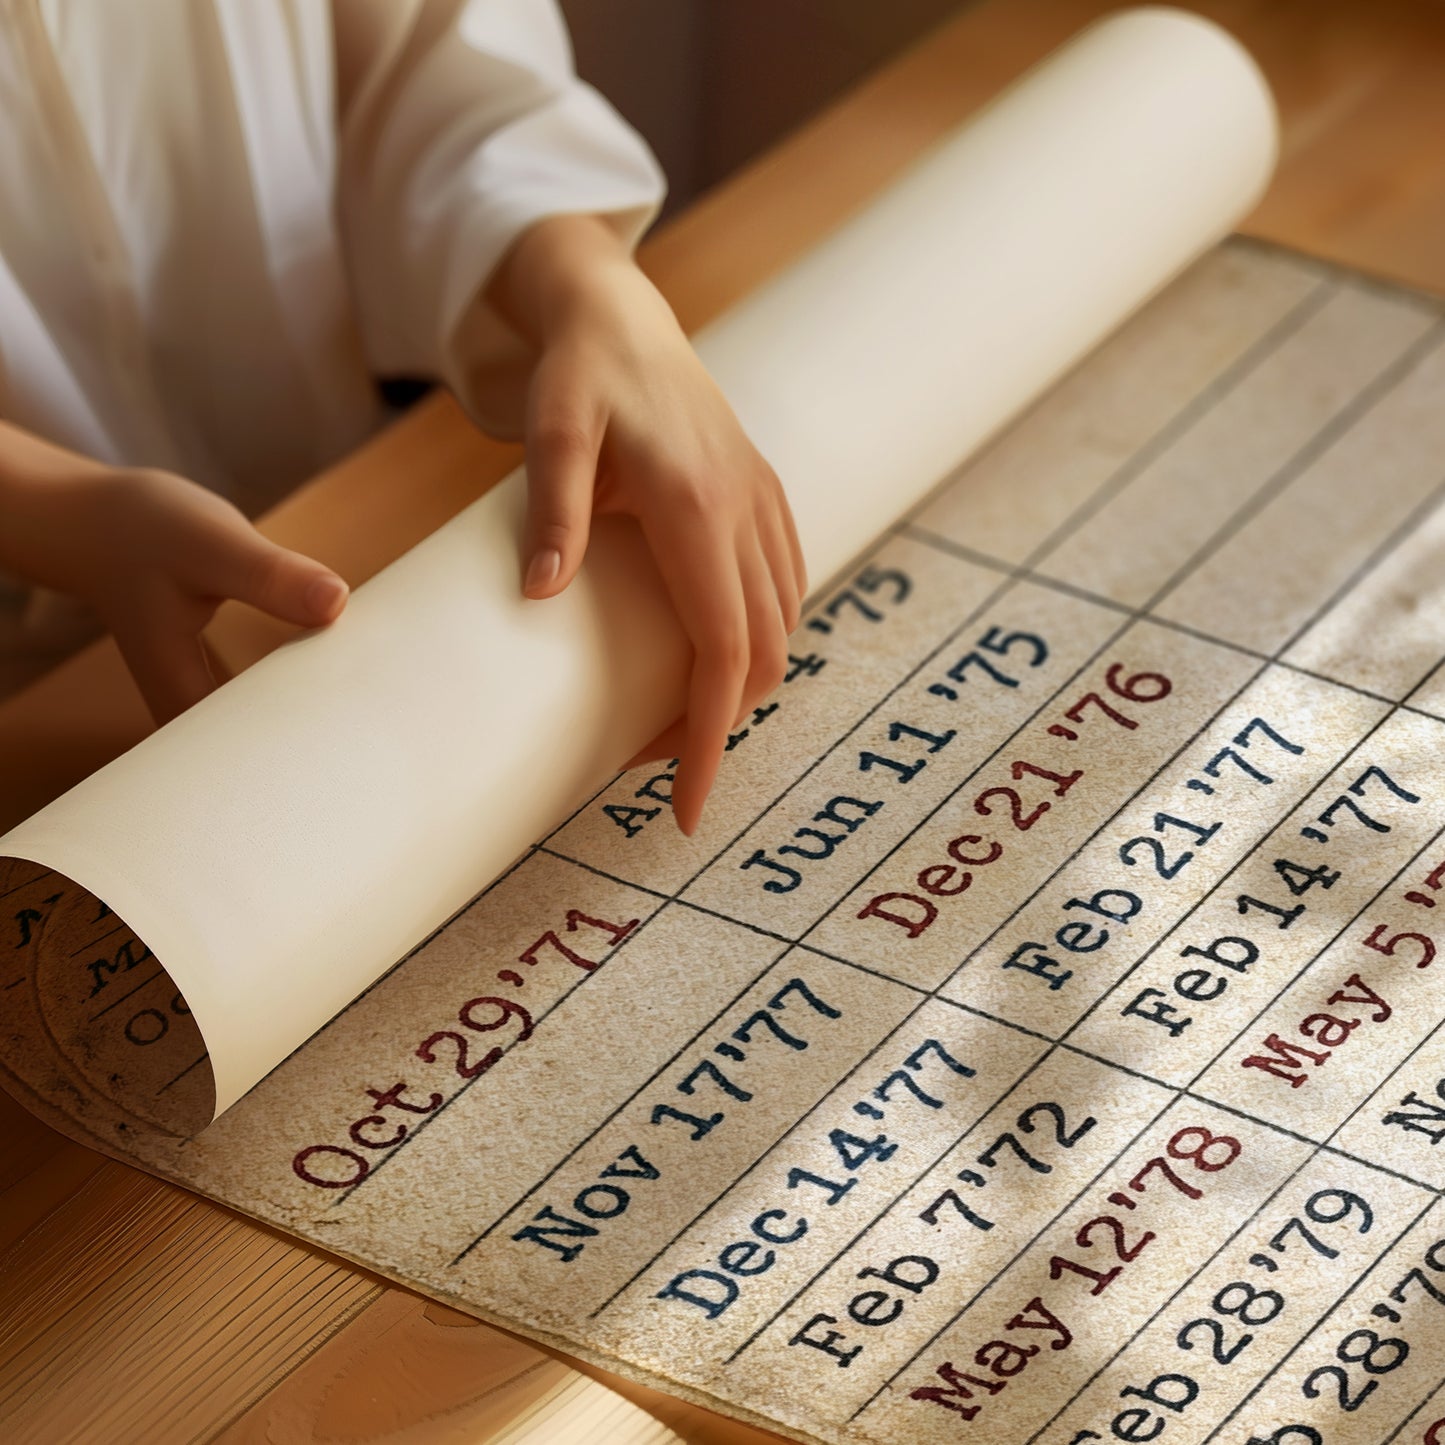 '75
Jun 11 '75
Dec 21 '76
Feb 21 '77
Feb 14 '77
May 5
Oct 29 '71
Nov 17 '77
Dec 14 '77
Feb 7 '72
May 12 '78
28 '79
28